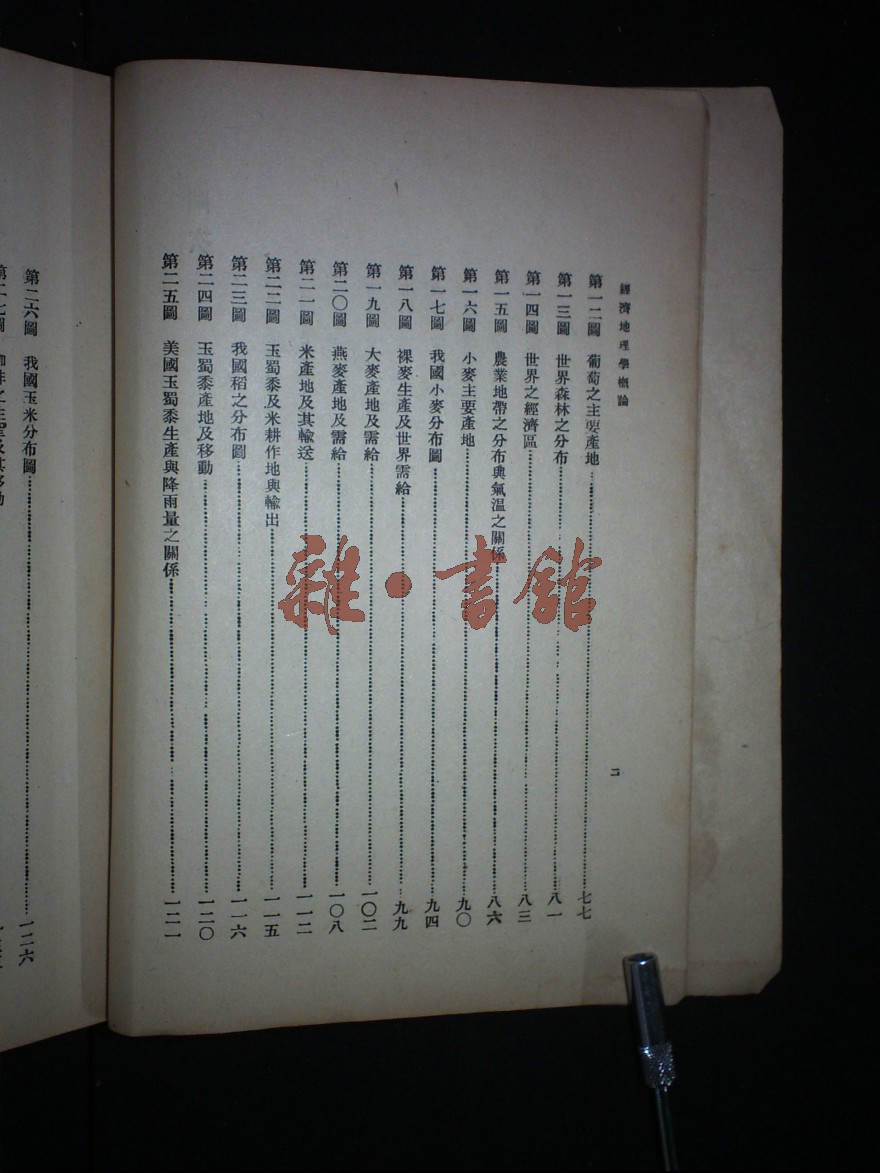 經濟地理學概論
二
第一二圖 葡萄之主要產地 七七
第一三圖 世界森林之分布 八一
第一四圖 世界之經濟區 八三
第一五圖 農業地帶之分布與氣溫之關係 八六
第一六圖 小麥主要產地 九〇
第一七圖 我國小麥分布圖 九四
第一八圖 裸麥生產及世界需給 九九
第一九圖 大麥產地及需給 一〇二
第二〇圖 燕麥產地及需給 一〇八
第二一圖 米產地及其輸送 一一二
第二二圖 玉蜀黍及米耕作地與輸出 一一五
第二三圖 我國稻之分布圖 一一六
第二四圖 玉蜀黍產地及移動 一二〇
第二五圖 美國玉蜀黍生產與降雨量之關係 一二一
第二六圖 我國玉米分布圖 一二六
第二七圖
雜·書館